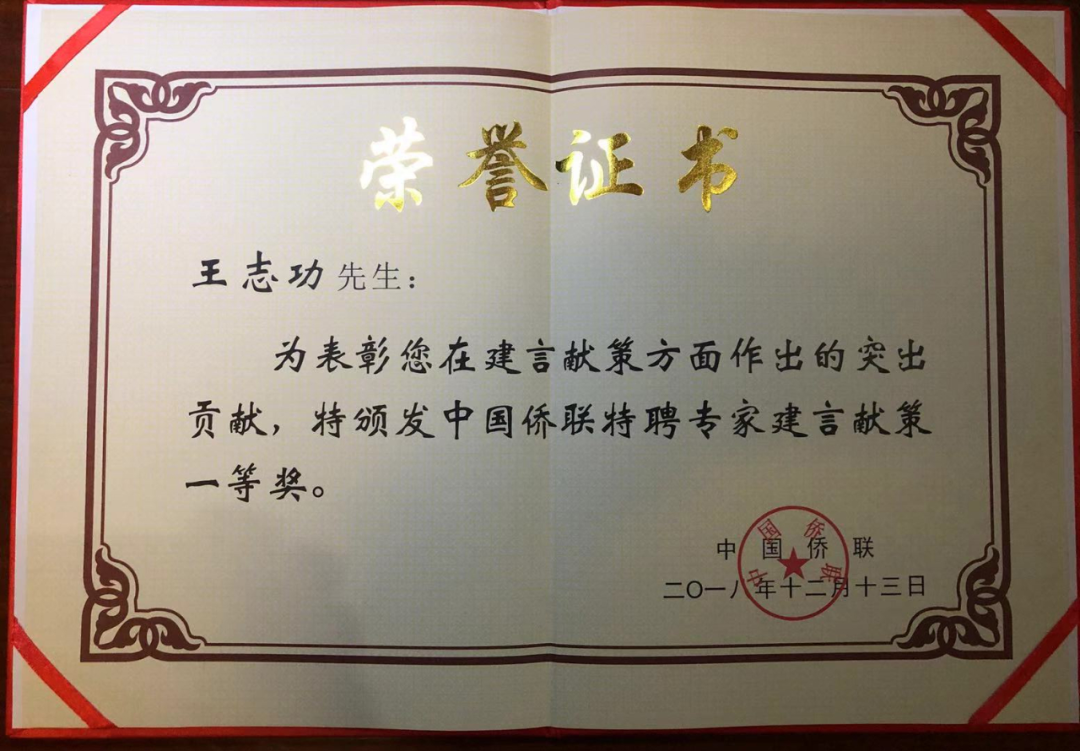 荣誉证书
王志功先生：
为表彰您在建言献策方面作出的突出
贡献，特颁发中国侨联特聘专家建言献策
一等奖。
中国侨联
二〇一八年十二月十三日
中国侨联